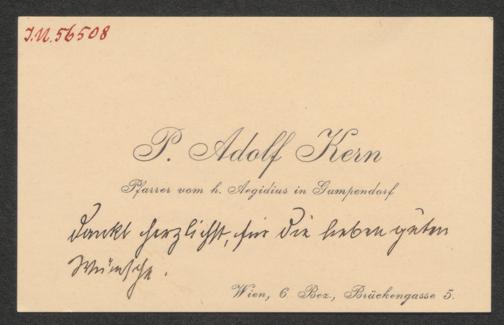 J.N. 56508
P. Adolf Kern
Pfarrer vom h. Aegidius in Gumpendorf
dankt herzlichst, für die lieben guten
Wünsche.
Wien, 6 Bez., Brückengasse 5.